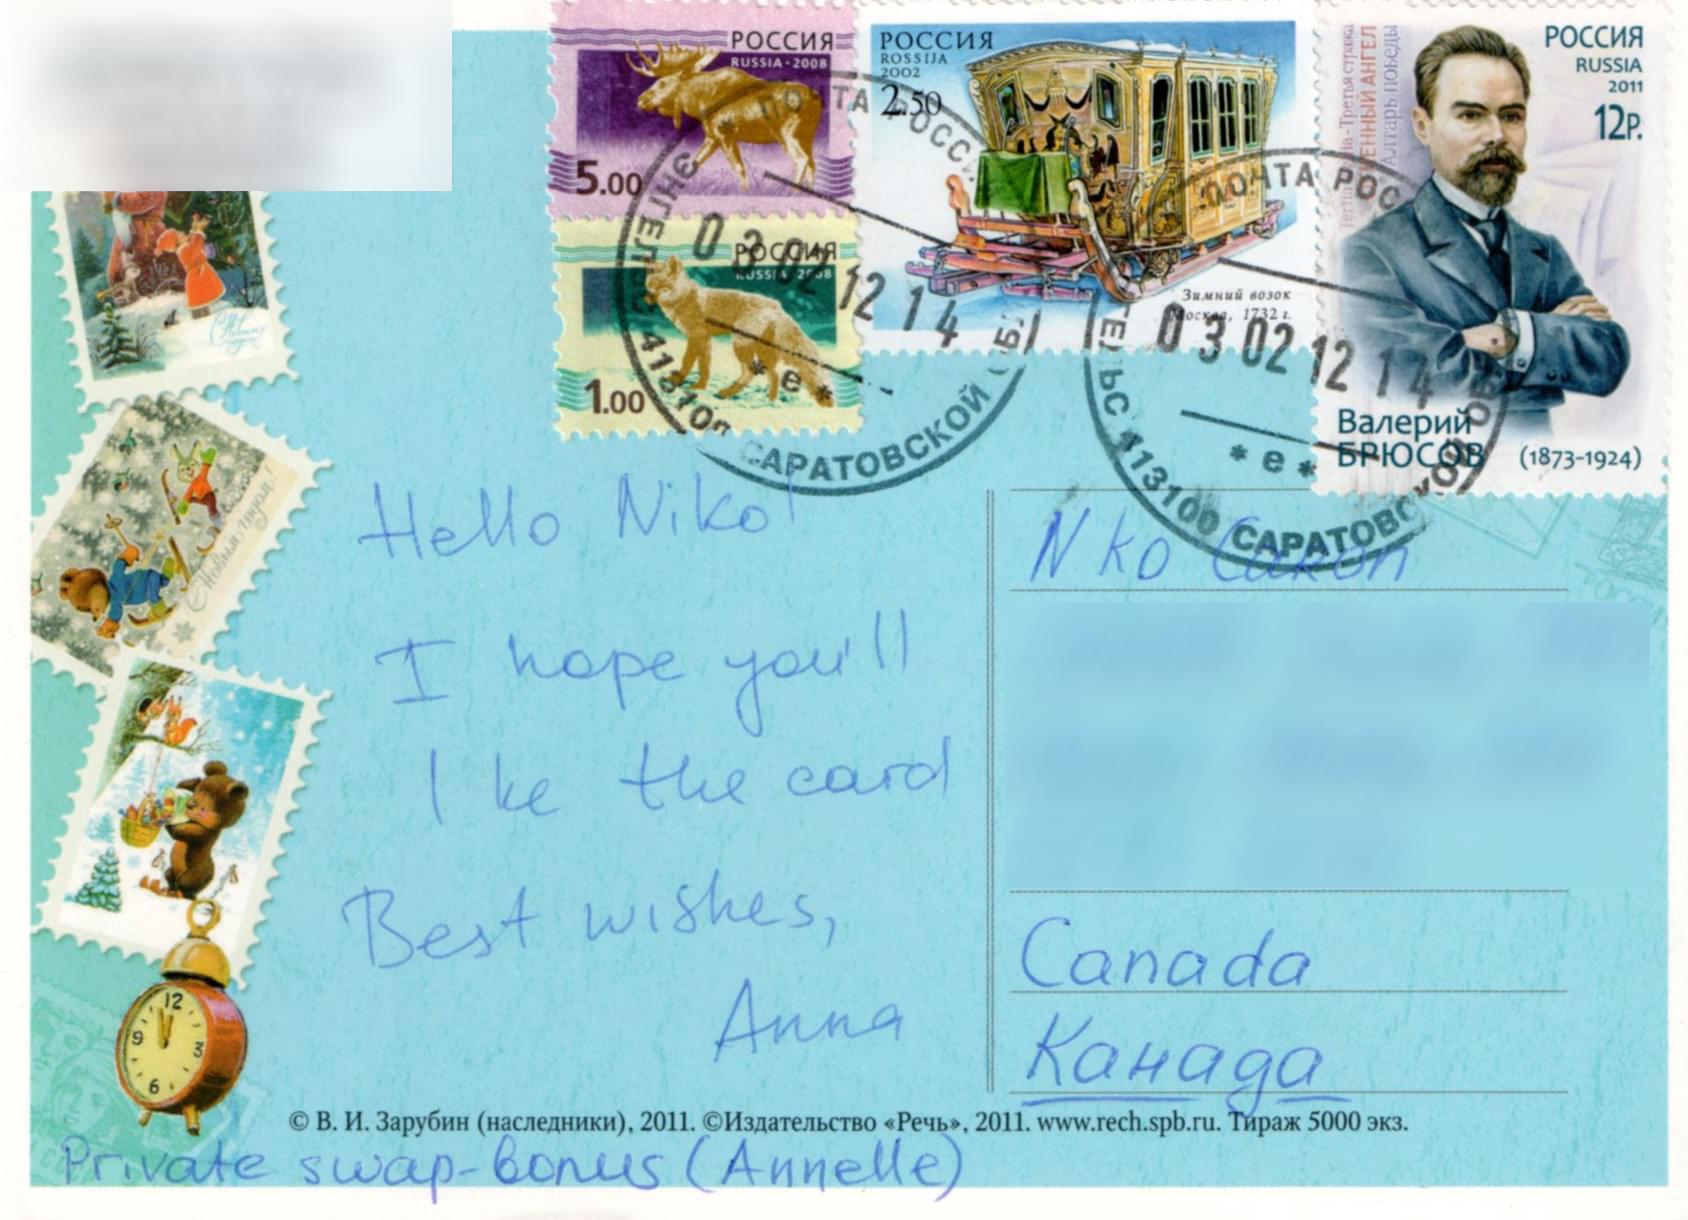 РОССИЯ
RUSSIA · 2008
5.00
РОССИЯ
RUSSIA · 2008
1.00
РОССИЯ
ROSSIJA
2002
2.50
Зимний возок
Москва, 1732 г.
РОССИЯ
RUSSIA
2011
12Р.
Валерий
БРЮСОВ
(1873-1924)
ПОЧТА РОССИ
03 02 12 14
413100 САРАТОВСКОЙ ОБЛ
* е *
ПОЧТА РОС
03 02 12 14
413100 САРАТОВСКОЙ ОБ
* е *
С Новым годом!
Hello Niko!
I hope you'll
l ke the card
Best wishes,
Anna
N ko
Canada
Канада
12
9 3
6
© В. И. Зарубин (наследники), 2011. ©Издательство «Речь», 2011. www.rech.spb.ru. Тираж 5000 экз.
Private swap-bonus (Annelle)